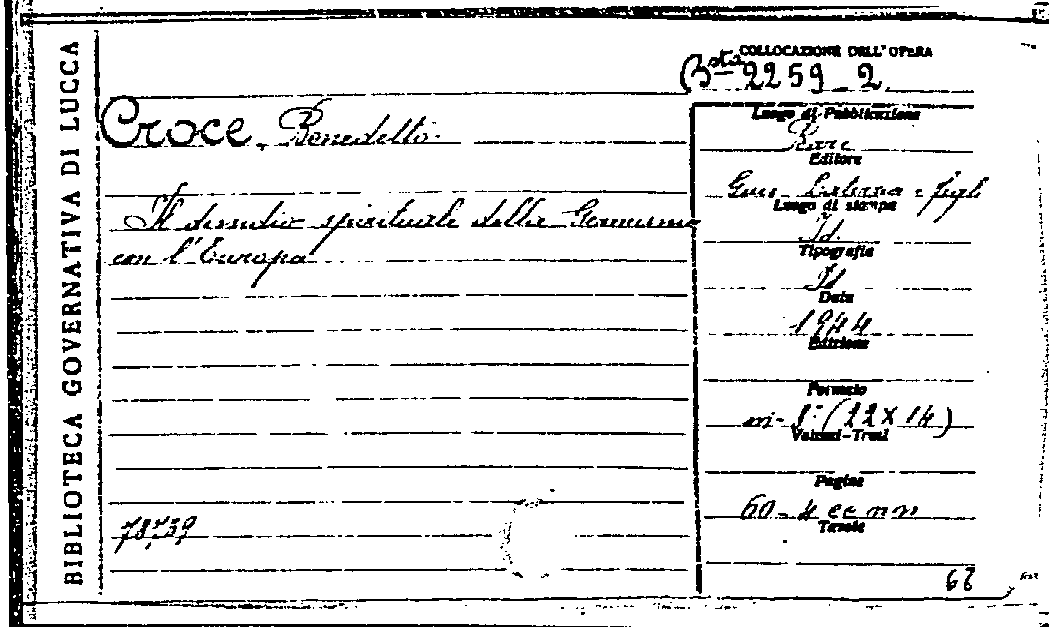 BIBLIOTECA GOVERNATIVA DI LUCCA
COLLOCAZIONE DELL'OPERA
Bsta 2259_2
Croce, Benedetto.
Il dissidio spirituale della Germania
con l'Europa
Luogo di Pubblicazione
Bari
Editore
Gius. Laterza e figli
Luogo di stampa
Id.
Tipografia
Id
Data
1944
Edizione
Formato
in-8° (22 X 14)
Volumi-Tomi
Pagine
60 - 4 cc nn
Tavole
78739